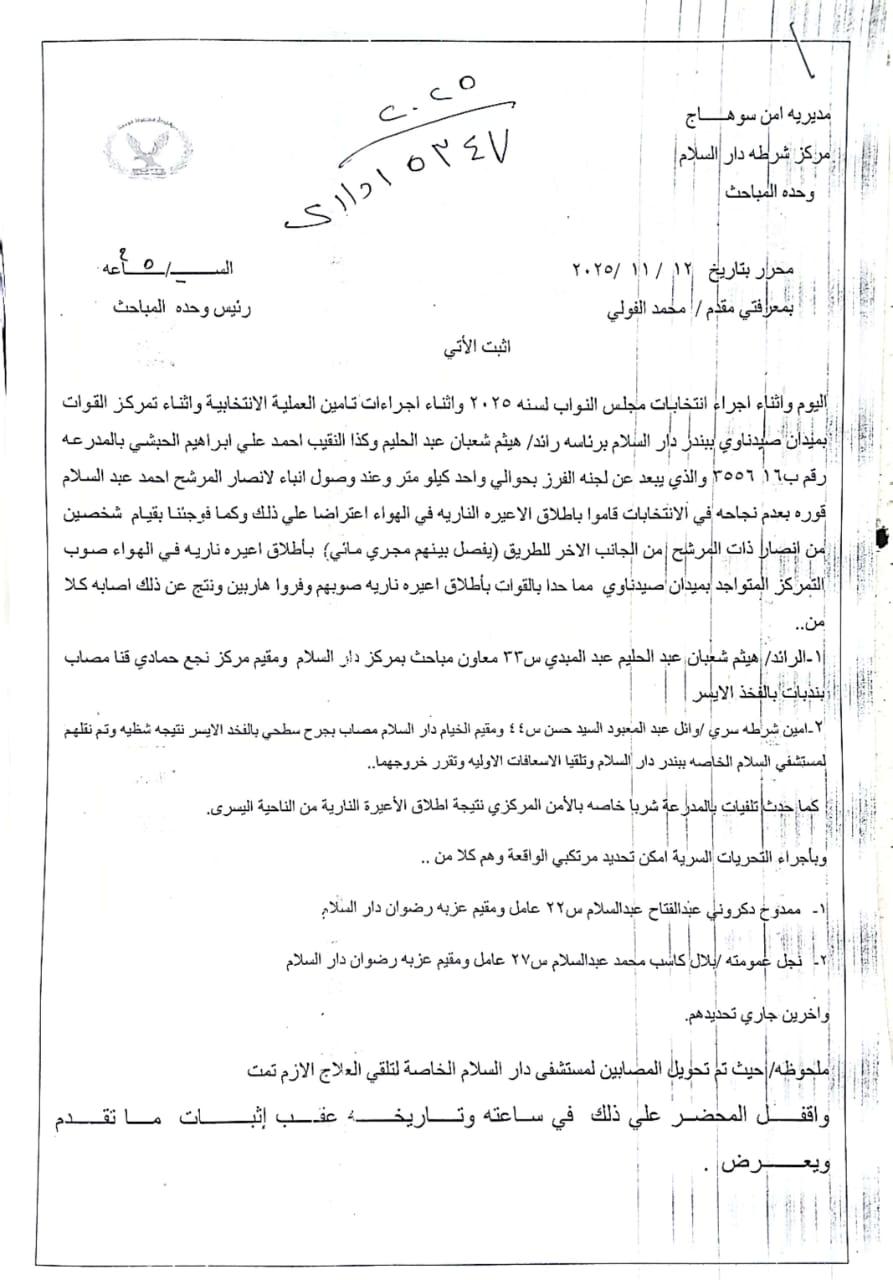 ٢٠٢٥
٥٣٤٧ اداري
مديريه امن سوهـــاج
مركز شرطه دار السلام
وحده المباحث
محرر بتاريخ ١٢ / ١١ /٢٠٢٥ الســـ/ـــاعه ٥ م
بمعرفتي مقدم / محمد الفولي رئيس وحده المباحث
اثبت الأتي
اليوم واثناء اجراء انتخابات مجلس النواب لسنه ٢٠٢٥ واثناء اجراءات تامين العملية الانتخابية واثناء تمركز القوات
بميدان صيدناوي ببندر دار السلام برئاسه رائد/ هيثم شعبان عبد الحليم وكذا النقيب احمد علي ابراهيم الحبشي بالمدرعه
رقم ب١٦ ٣٥٥٦ والذي يبعد عن لجنه الفرز بحوالي واحد كيلو متر وعند وصول انباء لانصار المرشح احمد عبد السلام
قوره بعدم نجاحه في الانتخابات قاموا باطلاق الاعيره الناريه في الهواء اعتراضا علي ذلك وكما فوجئنا بقيام شخصين
من انصار ذات المرشح من الجانب الاخر للطريق (يفصل بينهم مجري مائي) بأطلاق اعيره ناريه في الهواء صوب
التمركز المتواجد بميدان صيدناوي مما حدا بالقوات بأطلاق اعيره ناريه صوبهم وفروا هاربين ونتج عن ذلك اصابه كلا
من..
١-الرائد/ هيثم شعبان عبد الحليم عبد المبدي س٣٣ معاون مباحث بمركز دار السلام ومقيم مركز نجع حمادي قنا مصاب
بندبات بالفخذ الايسر
٢-امين شرطه سري /وائل عبد المعبود السيد حسن س٤٤ ومقيم الخيام دار السلام مصاب بجرح سطحي بالفخد الايسر نتيجه شظيه وتم نقلهم
لمستشفي السلام الخاصه ببندر دار السلام وتلقيا الاسعافات الاوليه وتقرر خروجهما..
كما حدث تلفيات بالمدرعة شربا خاصه بالأمن المركزي نتيجة اطلاق الأعيرة النارية من الناحية اليسرى.
وبأجراء التحريات السرية امكن تحديد مرتكبي الواقعة وهم كلا من ..
١- ممدوح دكروني عبدالفتاح عبدالسلام س٢٢ عامل ومقيم عزبه رضوان دار السلام
٢- نجل عمومته /بلال كاسب محمد عبدالسلام س٢٧ عامل ومقيم عزبه رضوان دار السلام
واخرين جاري تحديدهم.
ملحوظه/ حيث تم تحويل المصابين لمستشفى دار السلام الخاصة لتلقي العلاج الازم تمت
واقفـــل المحضـــر علي ذلك في ساعته وتـــاريخـــــه عقـــب إثبـــــات مـا تقـــدم
ويعـــــرض .